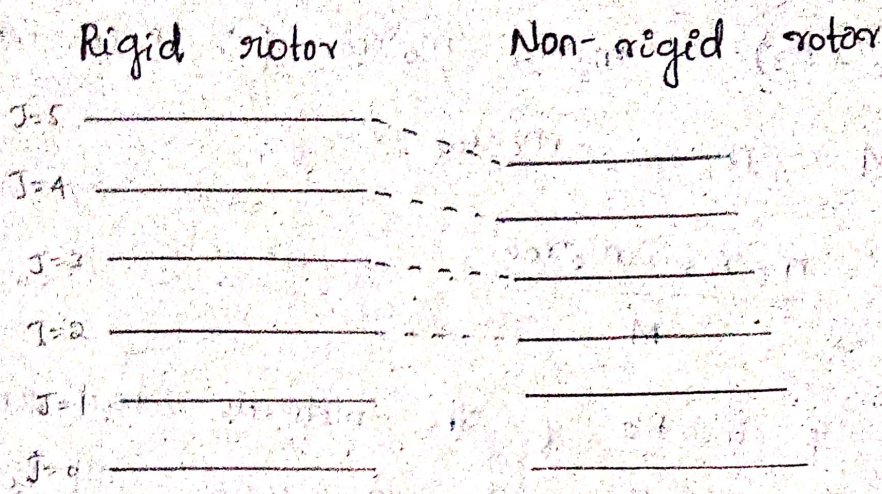 Rigid rotor Non-rigid rotor
J=5
J=4
J=3
J=2
J=1
J=0